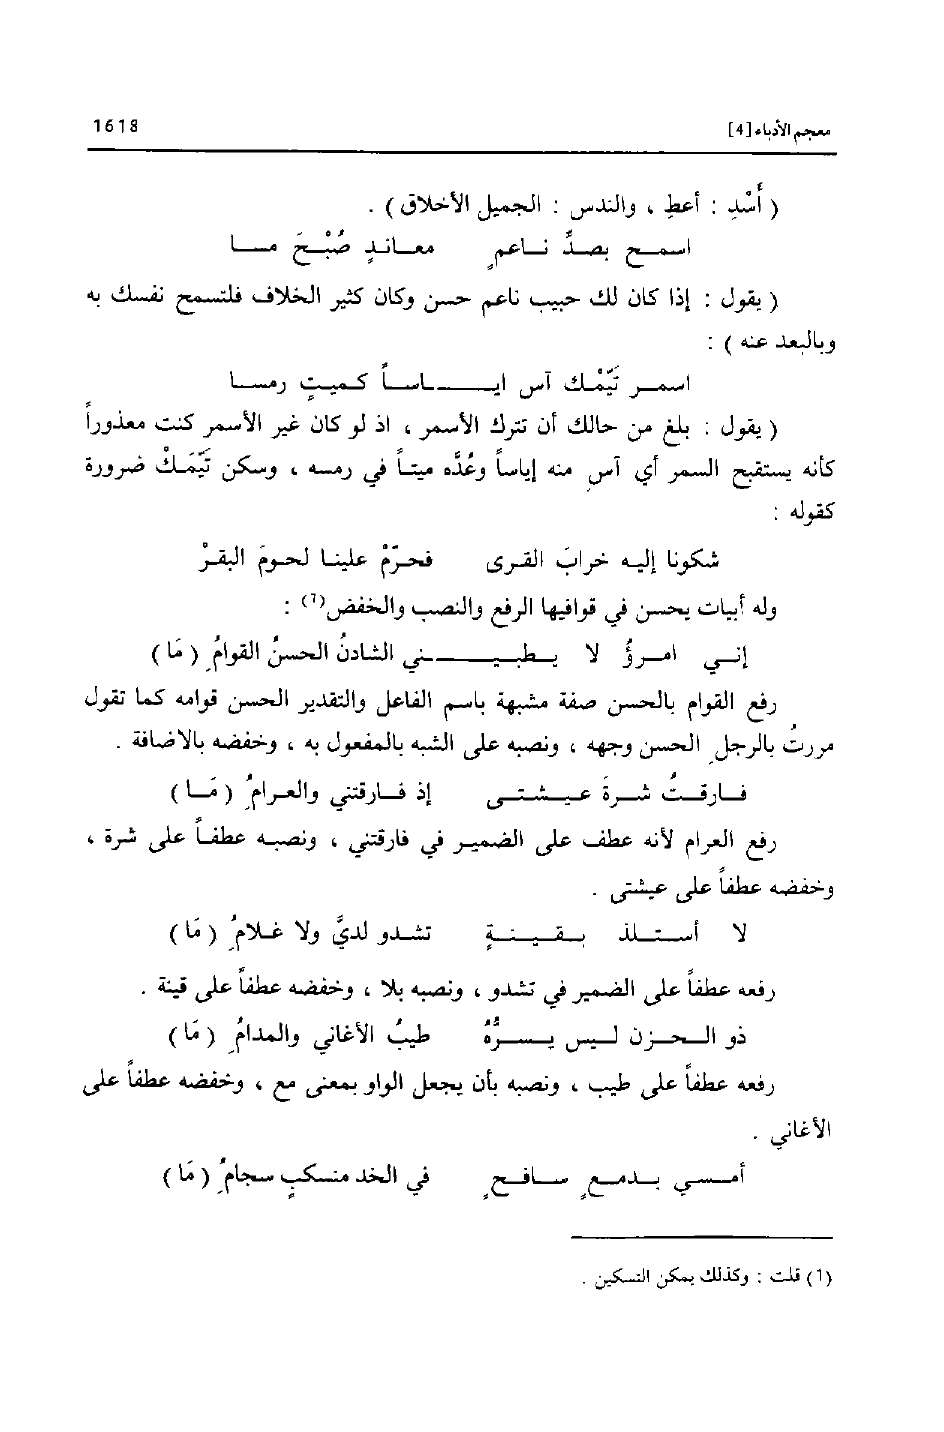 معجم الأدباء [4] 1618
( أَسْدِ : أعطِ ، والندس : الجميل الأخلاق ) .
اسمح بصدٍّ ناعمٍ معاندٍ صُبْحَ مسا
( يقول : إذا كان لك حبيب ناعم حسن وكان كثير الخلاف فلتسمح نفسك به
وبالبعد عنه ) :
اسمر تَيَّمْك آس اياساً كميتٍ رمسا
( يقول : بلغ من حالك أن تترك الأسمر ، اذ لو كان غير الأسمر كنت معذوراً
كأنه يستقبح السمر أي آسِ منه إياساً وعُدَّه ميتاً في رمسه ، وسكن تَيَّمَكْ ضرورة
كقوله :
شكونا إليه خرابَ القرى فحرّمْ علينا لحومَ البقرْ
وله أبيات يحسن في قوافيها الرفع والنصب والخفض(1) :
إني امرؤٌ لا يطبيني الشادنُ الحسنُ القوامُِ ( مَا )
رفع القوام بالحسن صفة مشبهة باسم الفاعل والتقدير الحسن قوامه كما تقول
مررتُ بالرجلِ الحسن وجهه ، ونصبه على الشبه بالمفعول به ، وخفضه بالاضافة .
فارقتُ شرةَ عيشتي إذ فارقتني والعرامُِ ( مَا )
رفع العرام لأنه عطف على الضمير في فارقتني ، ونصبه عطفاً على شرة ،
وخفضه عطفاً على عيشتي .
لا أستلذ بقينةٍ تشدو لديَّ ولا غلامُِ ( مَا )
رفعه عطفاً على الضمير في تشدو ، ونصبه بلا ، وخفضه عطفاً على قينة .
ذو الحزن ليس يسرُّهُ طيبُ الأغاني والمدامُِ ( مَا )
رفعه عطفاً على طيب ، ونصبه بأن يجعل الواو بمعنى مع ، وخفضه عطفاً على
الأغاني .
أمسي بدمعٍ سافحٍ في الخد منسكبٍ سجامُِ ( مَا )
(1) قلت : وكذلك يمكن التسكين .